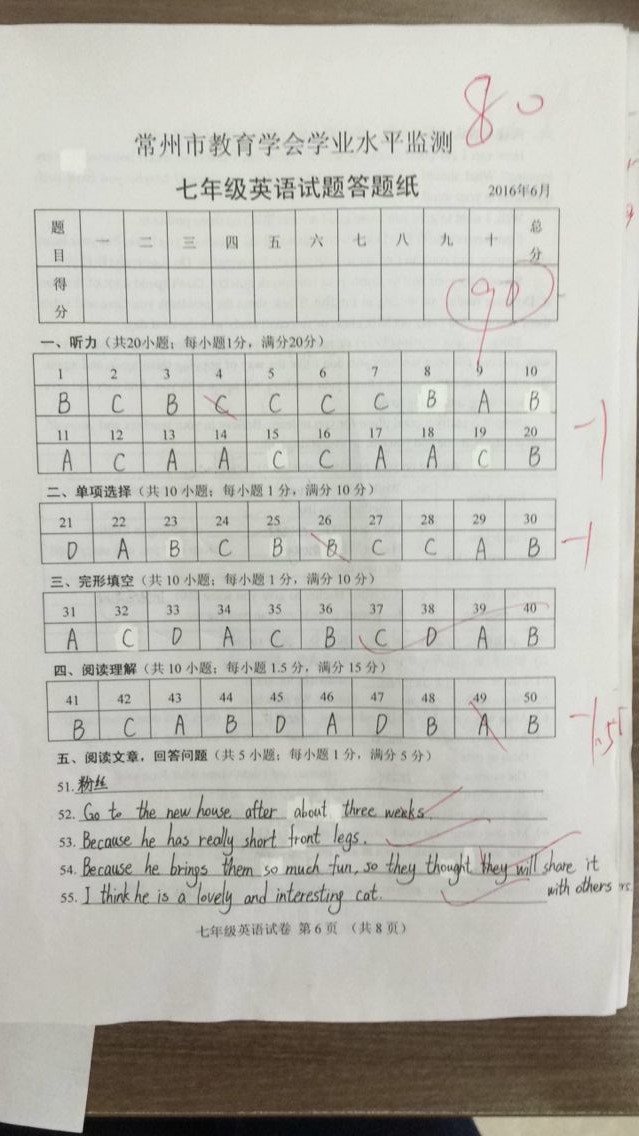 80
常州市教育学会学业水平监测
七年级英语试题答题纸 2016年6月
题目 一 二 三 四 五 六 七 八 九 十 总分
得分 90
一、听力（共20小题；每小题1分，满分20分）
1 2 3 4 5 6 7 8 9 10
B C B C C C C B A B
11 12 13 14 15 16 17 18 19 20
A C A A C C A A C B
-1
二、单项选择（共 10 小题；每小题 1 分，满分 10 分）
21 22 23 24 25 26 27 28 29 30
D A B C B B C C A B -1
三、完形填空（共 10 小题；每小题 1 分，满分 10 分）
31 32 33 34 35 36 37 38 39 40
A C D A C B C D A B
四、阅读理解（共 10 小题；每小题 1.5 分，满分 15 分）
41 42 43 44 45 46 47 48 49 50
B C A B D A D B A B -1.5
五、阅读文章，回答问题（共 5 小题；每小题 1 分，满分 5 分）
51. 粉丝
52. Go to the new house after about three weeks.
53. Because he has really short front legs.
54. Because he brings them so much fun, so they thought they will share it
with others
55. I think he is a lovely and interesting cat.
七年级英语试卷 第 6 页 （共 8 页）